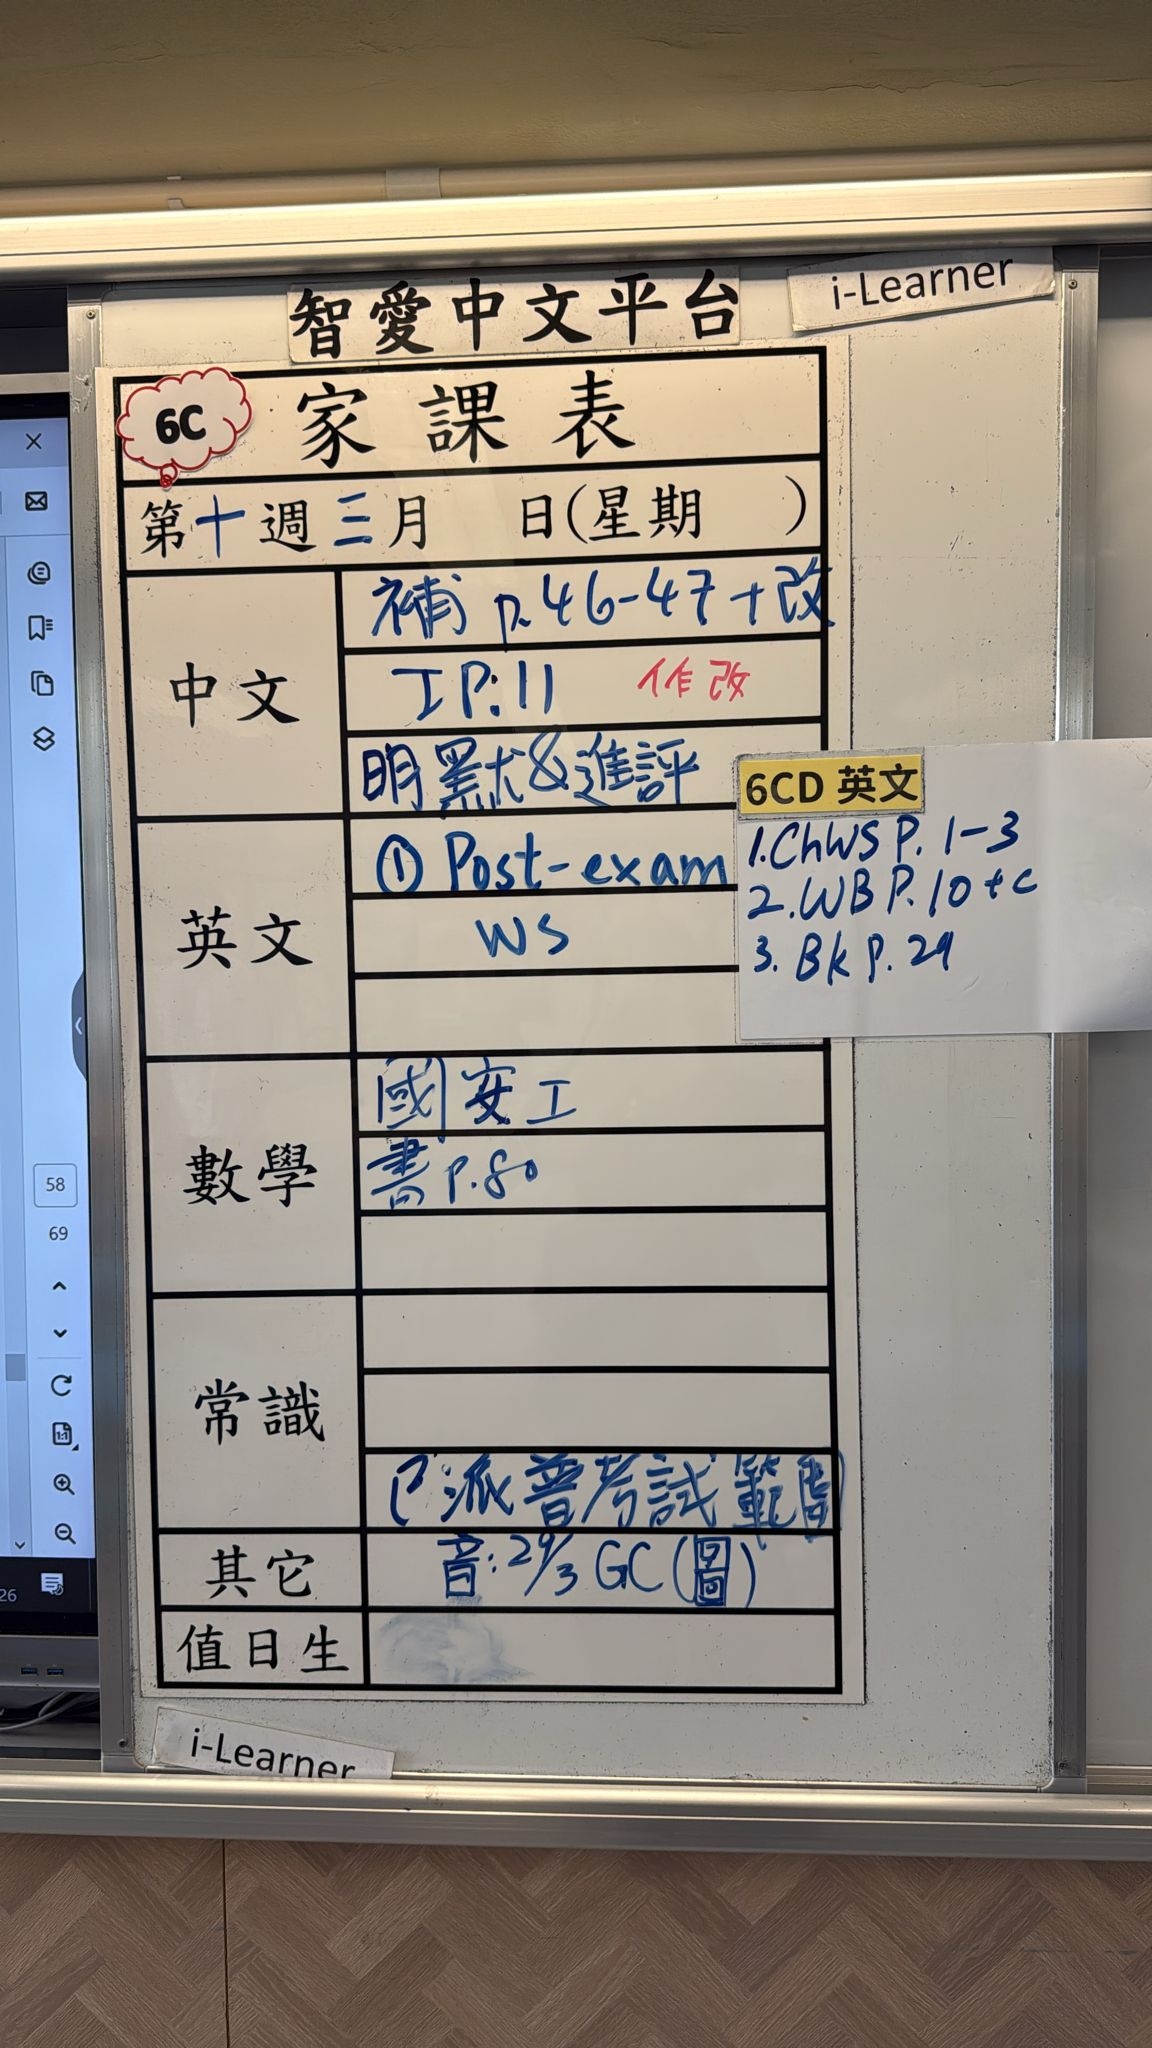 智愛中文平台
i-Learner
6C 家課表
第十週三月 日(星期 )
中文
補 p.46-47+改
工P:11 作改
明默&進評
英文
① Post-exam
WS
6CD 英文
1.ChWS P. 1-3
2.WB P.10+c
3. BK P.29
數學
國安工
書 P.80
常識
已派普考試範圍
其它
音:29/3 GC(圖)
值日生
i-Learner
58
69
1:1
26